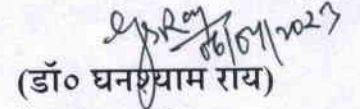 GSRoy
06/04/2023
(डॉ० घनश्याम राय)